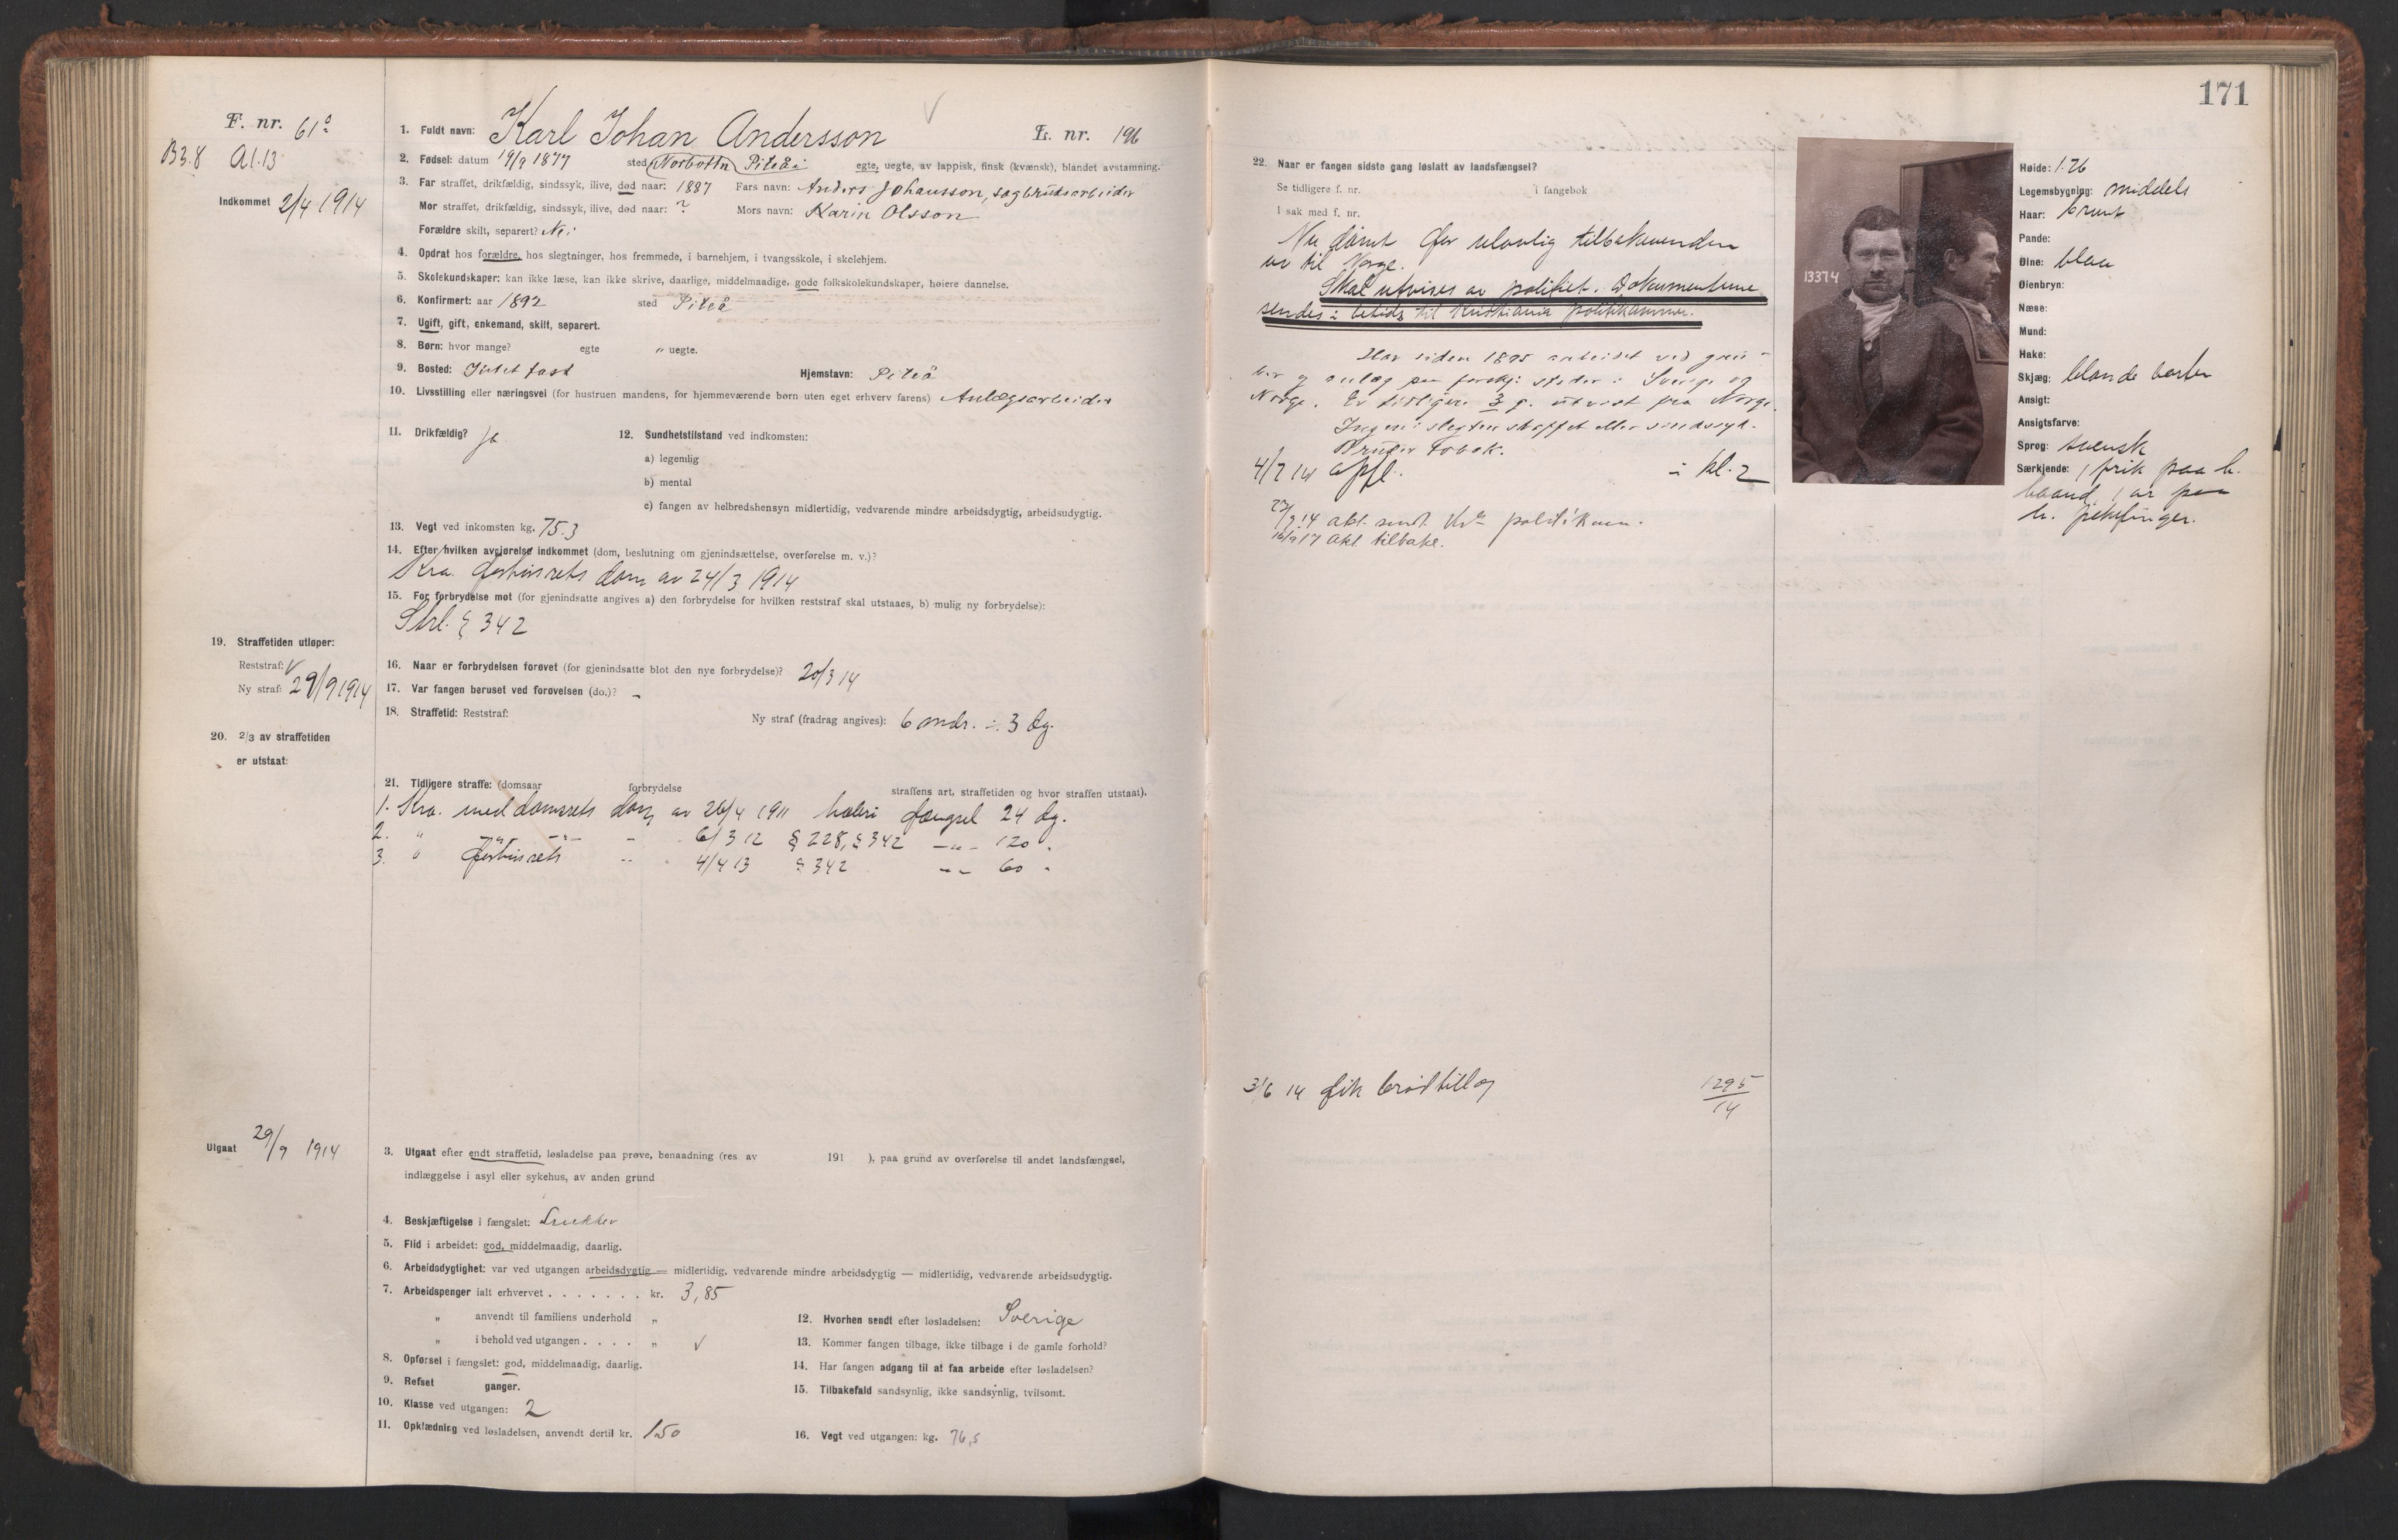 F. nr. 61a
B3.8 A1.13
Indkommet 2/4 1914
1. Fuldt navn: Karl Johan Andersson L. nr. 196
2. Fødsel: datum 19/9 1877 sted (Norbottn) Piteå egte, uegte, av lappisk, finsk (kvænsk), blandet avstamning.
3. Far straffet, drikfældig, sindssyk, ilive, død naar: 1887 Fars navn: Anders Johansson, sagbruksarbeider
Mor straffet, drikfældig, sindssyk, ilive, død naar: ? Mors navn: Karin Olsson
Forældre skilt, separert? Nei
4. Opdrat hos forældre, hos slegtninger, hos fremmede, i barnehjem, i tvangsskole, i skolehjem.
5. Skolekundskaper: kan ikke læse, kan ikke skrive, daarlige, middelmaadige, gode folkskolekundskaper, høiere dannelse.
6. Konfirmert: aar 1892 sted Piteå
7. Ugift, gift, enkemand, skilt, separert.
8. Børn: hvor mange? egte " uegte.
9. Bosted: Intet fast Hjemstavn: Piteå
10. Livsstilling eller næringsvei (for hustruen mandens, for hjemmeværende børn uten eget erhverv farens) Anlægsarbeider
11. Drikfældig? ja 12. Sundhetstilstand ved indkomsten:
a) legemlig
b) mental
c) fangen av helbredshensyn midlertidig, vedvarende mindre arbeidsdygtig, arbeidsudygtig.
13. Vegt ved inkomsten kg. 75.3
14. Efter hvilken avgjørelse indkommet (dom, beslutning om gjenindsættelse, overførelse m. v.)?
Kra. forhørsrets dom av 24/3 1914
15. For forbrydelse mot (for gjenindsatte angives a) den forbrydelse for hvilken reststraf skal utstaaes, b) mulig ny forbrydelse):
Strl. § 342
19. Straffetiden utløper:
Reststraf: √
Ny straf: 29/9 1914
16. Naar er forbrydelsen forøvet (for gjenindsatte blot den nye forbrydelse)? 20/3 14
17. Var fangen beruset ved forøvelsen (do.)? -
18. Straffetid: Reststraf: Ny straf (fradrag angives): 6 mdr. ÷ 3 dg.
20. 2/3 av straffetiden
er utstaat:
21. Tidligere straffe: (domsaar forbrydelse straffens art, straffetiden og hvor straffen utstaat).
1. Kra. meddomsrets dom av 26/4 1911 hæleri fængsel 24 dg.
2. " -"- -"- - 6/3 12 § 228, § 342 -"- 120 "
3. " forhørsrets -- 4/4 13 § 342 -"- 60 "
Utgaat 29/9 1914
3. Utgaat efter endt straffetid, løsladelse paa prøve, benaadning (res. av 191 ), paa grund av overførelse til andet landsfængsel,
indlæggelse i asyl eller sykehus, av anden grund
4. Beskjæftigelse i fængslet: Snekker
5. Flid i arbeidet: god, middelmaadig, daarlig.
6. Arbeidsdygtighet: var ved utgangen arbeidsdygtig — midlertidig, vedvarende mindre arbeidsdygtig — midlertidig, vedvarende arbeidsudygtig.
7. Arbeidspenger ialt erhvervet . . . . . . . kr. 3,85
" anvendt til familiens underhold "
" i behold ved utgangen . . . . " √
8. Opførsel i fængslet: god, middelmaadig, daarlig.
9. Refset ganger.
10. Klasse ved utgangen: 2
11. Opklædning ved løsladelsen, anvendt dertil kr. 1.50
12. Hvorhen sendt efter løsladelsen: Sverige
13. Kommer fangen tilbage, ikke tilbage i de gamle forhold?
14. Har fangen adgang til at faa arbeide efter løsladelsen?
15. Tilbakefald sandsynlig, ikke sandsynlig, tvilsomt.
16. Vegt ved utgangen: kg. 76,5
171
22. Naar er fangen sidste gang løslatt av landsfængsel?
Se tidligere f. nr. i fangebok
I sak med f. nr.
Nu dømt for ulovlig tilbakevenden
til Norge.
Skal utvises av politiet. Dokumenterne
sendes i betids til Kristiania politikammer.
Har siden 1895 arbeidet ved gru-
ber og anlæg paa forskj. steder i Sverige og
Norge. Er tidligere 3 g. utvist fra Norge.
Ingen i slegten straffet eller sindssyk.
Bruger Tobak.
4/7 14 opfl. i kl. 2
23/9 14 akt. sendt Kra politikam.
16/9 17 akt tilbake.
3/6 14 fik brødtillæg 1295/14
13374
Høide: 1.76
Legemsbygning: middels
Haar: brunt
Pande:
Øine: blaa
Øienbryn:
Næse:
Mund:
Hake:
Skjæg: blonde barter
Ansigt:
Ansigtsfarve:
Sprog: svensk
Særkjende: 1 prik paa h.
haand, 1 ar paa
h. pekefinger.